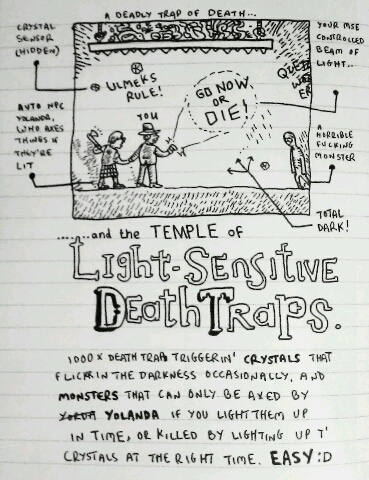 A DEADLY TRAP OF DEATH...
CRYSTAL
SENSOR
(HIDDEN)
YOUR MSE
CONTROLLED
BEAM OF
LIGHT...
ULMEKS
RULE!
GO NOW
OR
DIE!
YOU
AUTO NPC
YOLANDA,
WHO AXES
THINGS IF
THEY'RE
LIT
A
HORRIBLE
FUCKING
MONSTER
TOTAL
DARK!
.......and the TEMPLE of
Light-Sensitive
Death Traps.
1000 X DEATH TRAP TRIGGERIN' CRYSTALS THAT
FLICK IN THE DARKNESS OCCASIONALLY, AND
MONSTERS THAT CAN ONLY BE AXED BY
YOLANDA IF YOU LIGHT THEM UP
IN TIME, OR KILLED BY LIGHTING UP T'
CRYSTALS AT THE RIGHT TIME. EASY :D